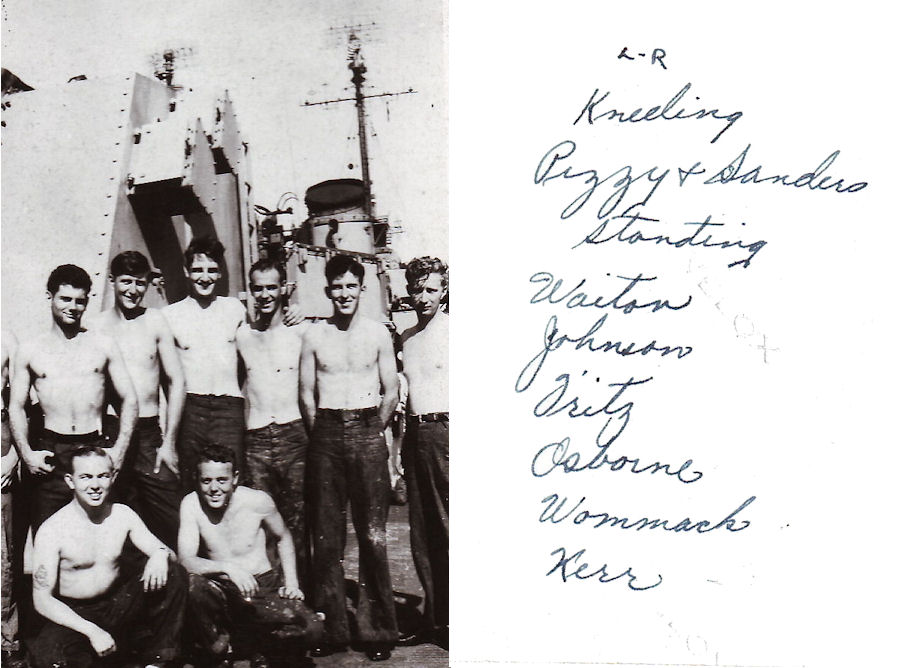 L-R
Kneeling
Pizzy & Sanders
Standing
Waiton
Johnson
Fritz
Osborne
Wommack
Kerr